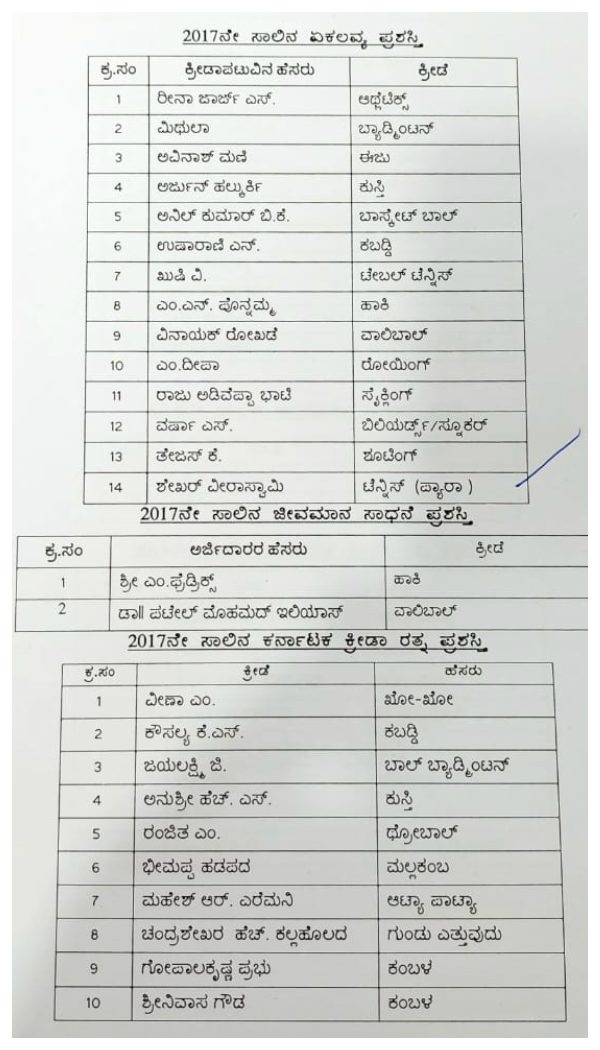 2017ನೇ ಸಾಲಿನ ಏಕಲವ್ಯ ಪ್ರಶಸ್ತಿ
ಕ್ರ.ಸಂ ಕ್ರೀಡಾಪಟುವಿನ ಹೆಸರು ಕ್ರೀಡೆ
1 ರೀನಾ ಜಾರ್ಜ್ ಎಸ್. ಅಥ್ಲೆಟಿಕ್ಸ್
2 ಮಿಥುಲಾ ಬ್ಯಾಡ್ಮಿಂಟನ್
3 ಅವಿನಾಶ್ ಮಣಿ ಈಜು
4 ಅರ್ಜುನ್ ಹಲ್ಕುರ್ಕಿ ಕುಸ್ತಿ
5 ಅನಿಲ್ ಕುಮಾರ್ ಬಿ.ಕೆ. ಬಾಸ್ಕೇಟ್ ಬಾಲ್
6 ಉಷಾರಾಣಿ ಎನ್. ಕಬಡ್ಡಿ
7 ಖುಷಿ ವಿ. ಟೇಬಲ್ ಟೆನ್ನಿಸ್
8 ಎಂ.ಎನ್. ಪೊನ್ನಮ್ಮ ಹಾಕಿ
9 ವಿನಾಯಕ್ ರೋಖಡೆ ವಾಲಿಬಾಲ್
10 ಎಂ.ದೀಪಾ ರೋಯಿಂಗ್
11 ರಾಜು ಅಡಿವೆಪ್ಪಾ ಭಾಟಿ ಸೈಕ್ಲಿಂಗ್
12 ವರ್ಷಾ ಎಸ್. ಬಿಲಿಯರ್ಡ್ಸ್/ಸ್ನೂಕರ್
13 ತೇಜಸ್ ಕೆ. ಶೂಟಿಂಗ್
14 ಶೇಖರ್ ವೀರಾಸ್ವಾಮಿ ಟೆನ್ನಿಸ್ (ಪ್ಯಾರಾ )
2017ನೇ ಸಾಲಿನ ಜೀವಮಾನ ಸಾಧನೆ ಪ್ರಶಸ್ತಿ
ಕ್ರ.ಸಂ ಅರ್ಜಿದಾರರ ಹೆಸರು ಕ್ರೀಡೆ
1 ಶ್ರೀ ಎಂ.ಫ್ರೆಡ್ರಿಕ್ಸ್ ಹಾಕಿ
2 ಡಾ|| ಪಟೇಲ್ ಮೊಹಮದ್ ಇಲಿಯಾಸ್ ವಾಲಿಬಾಲ್
2017ನೇ ಸಾಲಿನ ಕರ್ನಾಟಕ ಕ್ರೀಡಾ ರತ್ನ ಪ್ರಶಸ್ತಿ
ಕ್ರ.ಸಂ ಕ್ರೀಡೆ ಹೆಸರು
1 ವೀಣಾ ಎಂ. ಖೋ-ಖೋ
2 ಕೌಸಲ್ಯ ಕೆ.ಎಸ್. ಕಬಡ್ಡಿ
3 ಜಯಲಕ್ಷ್ಮಿ ಜಿ. ಬಾಲ್ ಬ್ಯಾಡ್ಮಿಂಟನ್
4 ಅನುಶ್ರೀ ಹೆಚ್. ಎಸ್. ಕುಸ್ತಿ
5 ರಂಜಿತ ಎಂ. ಥ್ರೋಬಾಲ್
6 ಭೀಮಪ್ಪ ಹಡಪದ ಮಲ್ಲಕಂಬ
7 ಮಹೇಶ್ ಆರ್. ಎರೆಮನಿ ಆಟ್ಯಾ ಪಾಟ್ಯಾ
8 ಚಂದ್ರಶೇಖರ ಹೆಚ್. ಕಲ್ಲಹೊಲದ ಗುಂಡು ಎತ್ತುವುದು
9 ಗೋಪಾಲಕೃಷ್ಣ ಪ್ರಭು ಕಂಬಳ
10 ಶ್ರೀನಿವಾಸ ಗೌಡ ಕಂಬಳ